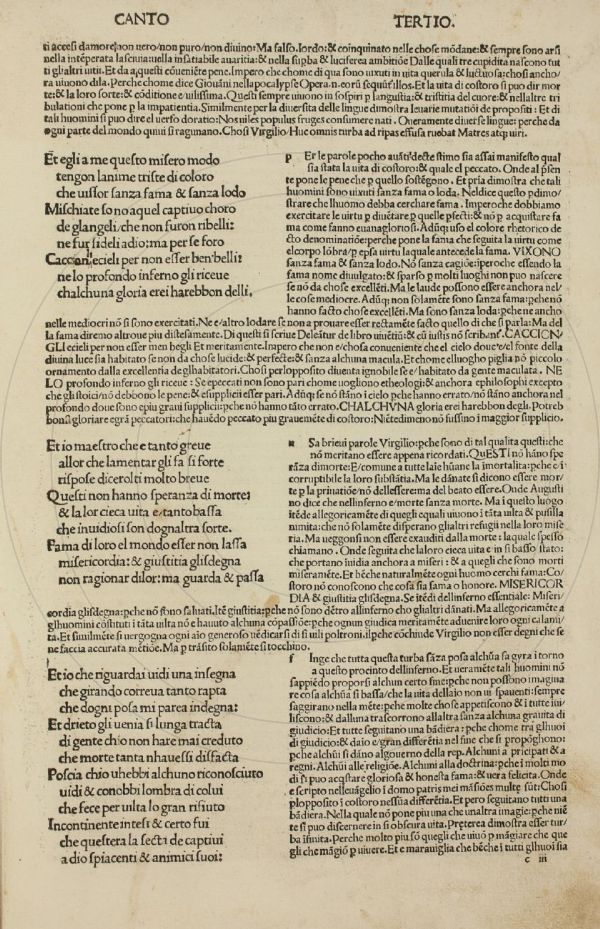 CANTO TERTIO.
ti accesi damore/non uero/non puro/non diuino: Ma falso. lordo: & coinquinato nelle chose mōdane: & sempre sono arsi
nella intēperata lasciuia: nella insatiabile auaritia: & nella supba & luciferea ambitiōe Dalle quali tre cupidita nascono tut
ti glhaltri uitii. Et da aquesti cōueniēte pene. Impero che chome di qua sono uixuti in uita querula & luctuosa: chosi ancho
ra uiuono dila. Perche chome dice Giouāni nellapocalypse Opera.n.eorū sequūt illos. Et la uita di costoro si puo dir mor
te: & la loro sorte: & cōditione e/uilissima. Questi sempre uiuono in sospiri p langustia: & tristitia del cuore: & nellaltre tri
bulationi che pone p la impatientia. Similmente per la diuersita delle lingue dimostra leuarie mutatiōi de propositi: Et di
tali huomini si puo dire el uerso doratio: Nos niles populus fruges consumere nati. Oueramente diuerse lingue: perche da
ogni parte del mondo quiui si ragunano. Chosi Virgilio Hue omnis turba ad ripas effusa ruebat Matres atq; uiri.
Et egli a me questo misero modo
tengon lanime triste di coloro
che uissor sanza fama & sanza lodo
Mischiate sono aquel captiuo choro
de glangeli/che non furon ribelli:
ne fur fideli adio: ma per se foro
Caccion ecieli per non esser ben belli:
ne lo profondo inferno gli riceue
chalchuna gloria erei harebbon delli.
p Er le parole pocho auāti decte stimo sia assai manifesto qual
sia stata la uita di costoro: & quale el peccato. Onde al psen
te pone le pene che p quello sostēgono. Et pria dimostra che tali
huomini sono uixuti sanza fama o loda. Nel dice questo p dimo/
strare che lhuomo debba cerchare fama. Imperoche dobbiamo
exercitare le uirtu p diuētare p quelle pfecti: & nō p acquistare fa
ma come fanno euanagloriosi. Adūq; uso el colore rhetorico de
cto denominatiōe: perche pone la fama che seguita la uirtu come
el corpo lōbra/p epsa uirtu laquale antecede la fama. VIXONO
sanza fama & sanza lodo. Nō sanza cagiōe: iperche essendo la
fama nome diuulgato: & sparso p molti luoghi non puo nascere
se nō da chose excellēti. Ma le laude possono essere anchora nel/
le cose mediocre. Adūq; non solamēte sono sanza fama: pche nō
hanno facto chose excellēti. Ma sono sanza loda: pche ne ancho
nelle mediocri nō si sono exercitati. Ne e/altro lodare se non a prouare esser rectamēte facto quello di che si parla: Ma del
la fama diremo altroue piu distesamente. Di questi si scriue Deleātur de libro uiuētiū: & cū iustis nō scribātur. CACCION/
GLI ecieli per non esser men begli. Et meritamente. Impero che non e/chosa conueniente che el cielo doue/e/el fonte della
diuina luce sia habitato se non da chose lucide: & perfecte: & sanza alchuna macula. Et chome el luogho piglia nō piccolo
ornamento dalla excellentia de glhabitatori. Chosi per lopposito diuenta ignobile se e/habitato da gente maculata. NE
LO profondo inferno gli riceue: Se epeccati non sono pari chome uogliono etheologi: & anchora ephilosophi excepto
che gli stoici/nō debbono le pene: & esupplicii esser pari. Adūq; se nō stāno i cielo pche hanno errato/nō stāno anchora nel
profondo doue sono epiu graui supplicii: pche nō hanno tāto errato. CHALCHVNA gloria erei harebbon degli. Potreb
bonsi gloriare egrā peccatori: che hauēdo peccato piu grauemēte di costoro: Niētedimeno nō fussino i maggior supplicio.
Et io maestro che e tanto greue
allor che lamentar gli fa si forte
rispose dicerolti molto breue
Questi non hanno speranza di morte:
& la lor cieca uita e/tanto bassa
che inuidiosi son dognaltra sorte.
Fama di loro el mondo esser non lassa
misericordia: & giustitia glisdegna
non ragionar dilor: ma guarda & passa
Sa brieui parole Virgilio: pche sono di tal qualita questi: che
nō meritano essere appena ricordati. QVESTI nō hāno spe
rāza dimorte: E/comune a tutte laie hūane la imortalita: pche e/i
corruptibile la loro substātia. Ma le dānate si dicono essere mor/
te p la priuatiōe/nō dellessere: ma del beato essere. Onde Augusti
no dice che nellinferno e/morte sanza morte. Ma i questo luogo
itēde allegoricamēte di quegli equali uiuono i tāta uilta & pusilla
nimita: che nō solamēte disperano glialtri refugii nella loro mise
ria. Ma ueggonsi non essere exauditi dalla morte: laquale spesso
chiamano. Onde seguita che laloro cieca uita e in si basso stato:
che portano inuidia anchora a miseri: & a quegli che sono morti
miseramēte. Et bēche naturalmēte ogni huomo cerchi fama: Co/
storo nō conoscono che cosa sia fama o honore. MISERICOR
DIA & giustitia glisdegna. Se itēdi dellinferno essentiale: Miseri/
cordia glisdegna: pche nō sono saluati. Ne giustitia: pche nō sono dētro allinferno cho glialtri dānati. Ma allegoricamēte a
glhuomini cōstituti i tāta uilta nō e hauuto alchuna cōpassiōe: pche ognun giudica meritamēte aduenire loro ogni calami/
ta. Et similmēte si uergogna ogni aio generoso uēdicarsi di si uili poltroni. ilpche cōchiude Virgilio non esser degni che se
ne faccia accurata mētiōe. Ma p trāsito solamēte si tocchino.
Et io che riguardai uidi una insegna
che girando correua tanto rapta
che dogni posa mi parea indegna:
Et drieto gli uenia si lunga tracta
di gente chio non hare mai creduto
che morte tanta nhauessi disfacta
Poscia chio uhebbi alchuno riconosciuto
uidi & conobbi lombra di colui
che fece per uilta lo gran rifiuto
Incontinente intesi & certo fui
che questera la secta de captiui
a dio spiacenti & animici suoi:
f Inge che tutta questa turba sāza posa alchūa sa gyra i torno
a questo procinto dellinferno. Et ueramēte tali huomini nō
sappiēdo proporsi alchun certo fine: pche non possono imagina
re cosa alchūa si bassa/che la uita dellaio non ui spauenti: sempre
saggirano nella mēte: pche molte chose appetiscono & i tutte iui/
liscono: & dalluna trascorrono allaltra sanza alchuna grauita di
giudicio: Et tutte seguitano una bādiera: pche chome tra glhuoi
di giudicio: & daio e/gran differētia nel fine che si propōghono:
pche alchūi si dāno algouerno della rep. Alchuni a pricipati & a
regni. Alchūi alle religiōe. Alchuni alla doctrina: pche i molti mo
di si puo acqstare gloriosa & honesta fama: & uera felicita. Onde
e scripto nelleuāgelio i domo patris mei māsiōes multę sūt: Chosi
plopposito i costoro ne ssūa differētia. Et pero seguitano tutti una
bādiera. Nella quale nō pone piu una che unaltra imagie: pche niē
te si puo discernere in si obscura uita. Preterea dimostra esser tur/
ba ifinita. Perche molto piu sō quegli che uiuō p māgiare che que
gli che māgiō p uiuere. Et e marauiglia che bēche i tutti glhuoi sia
c iii